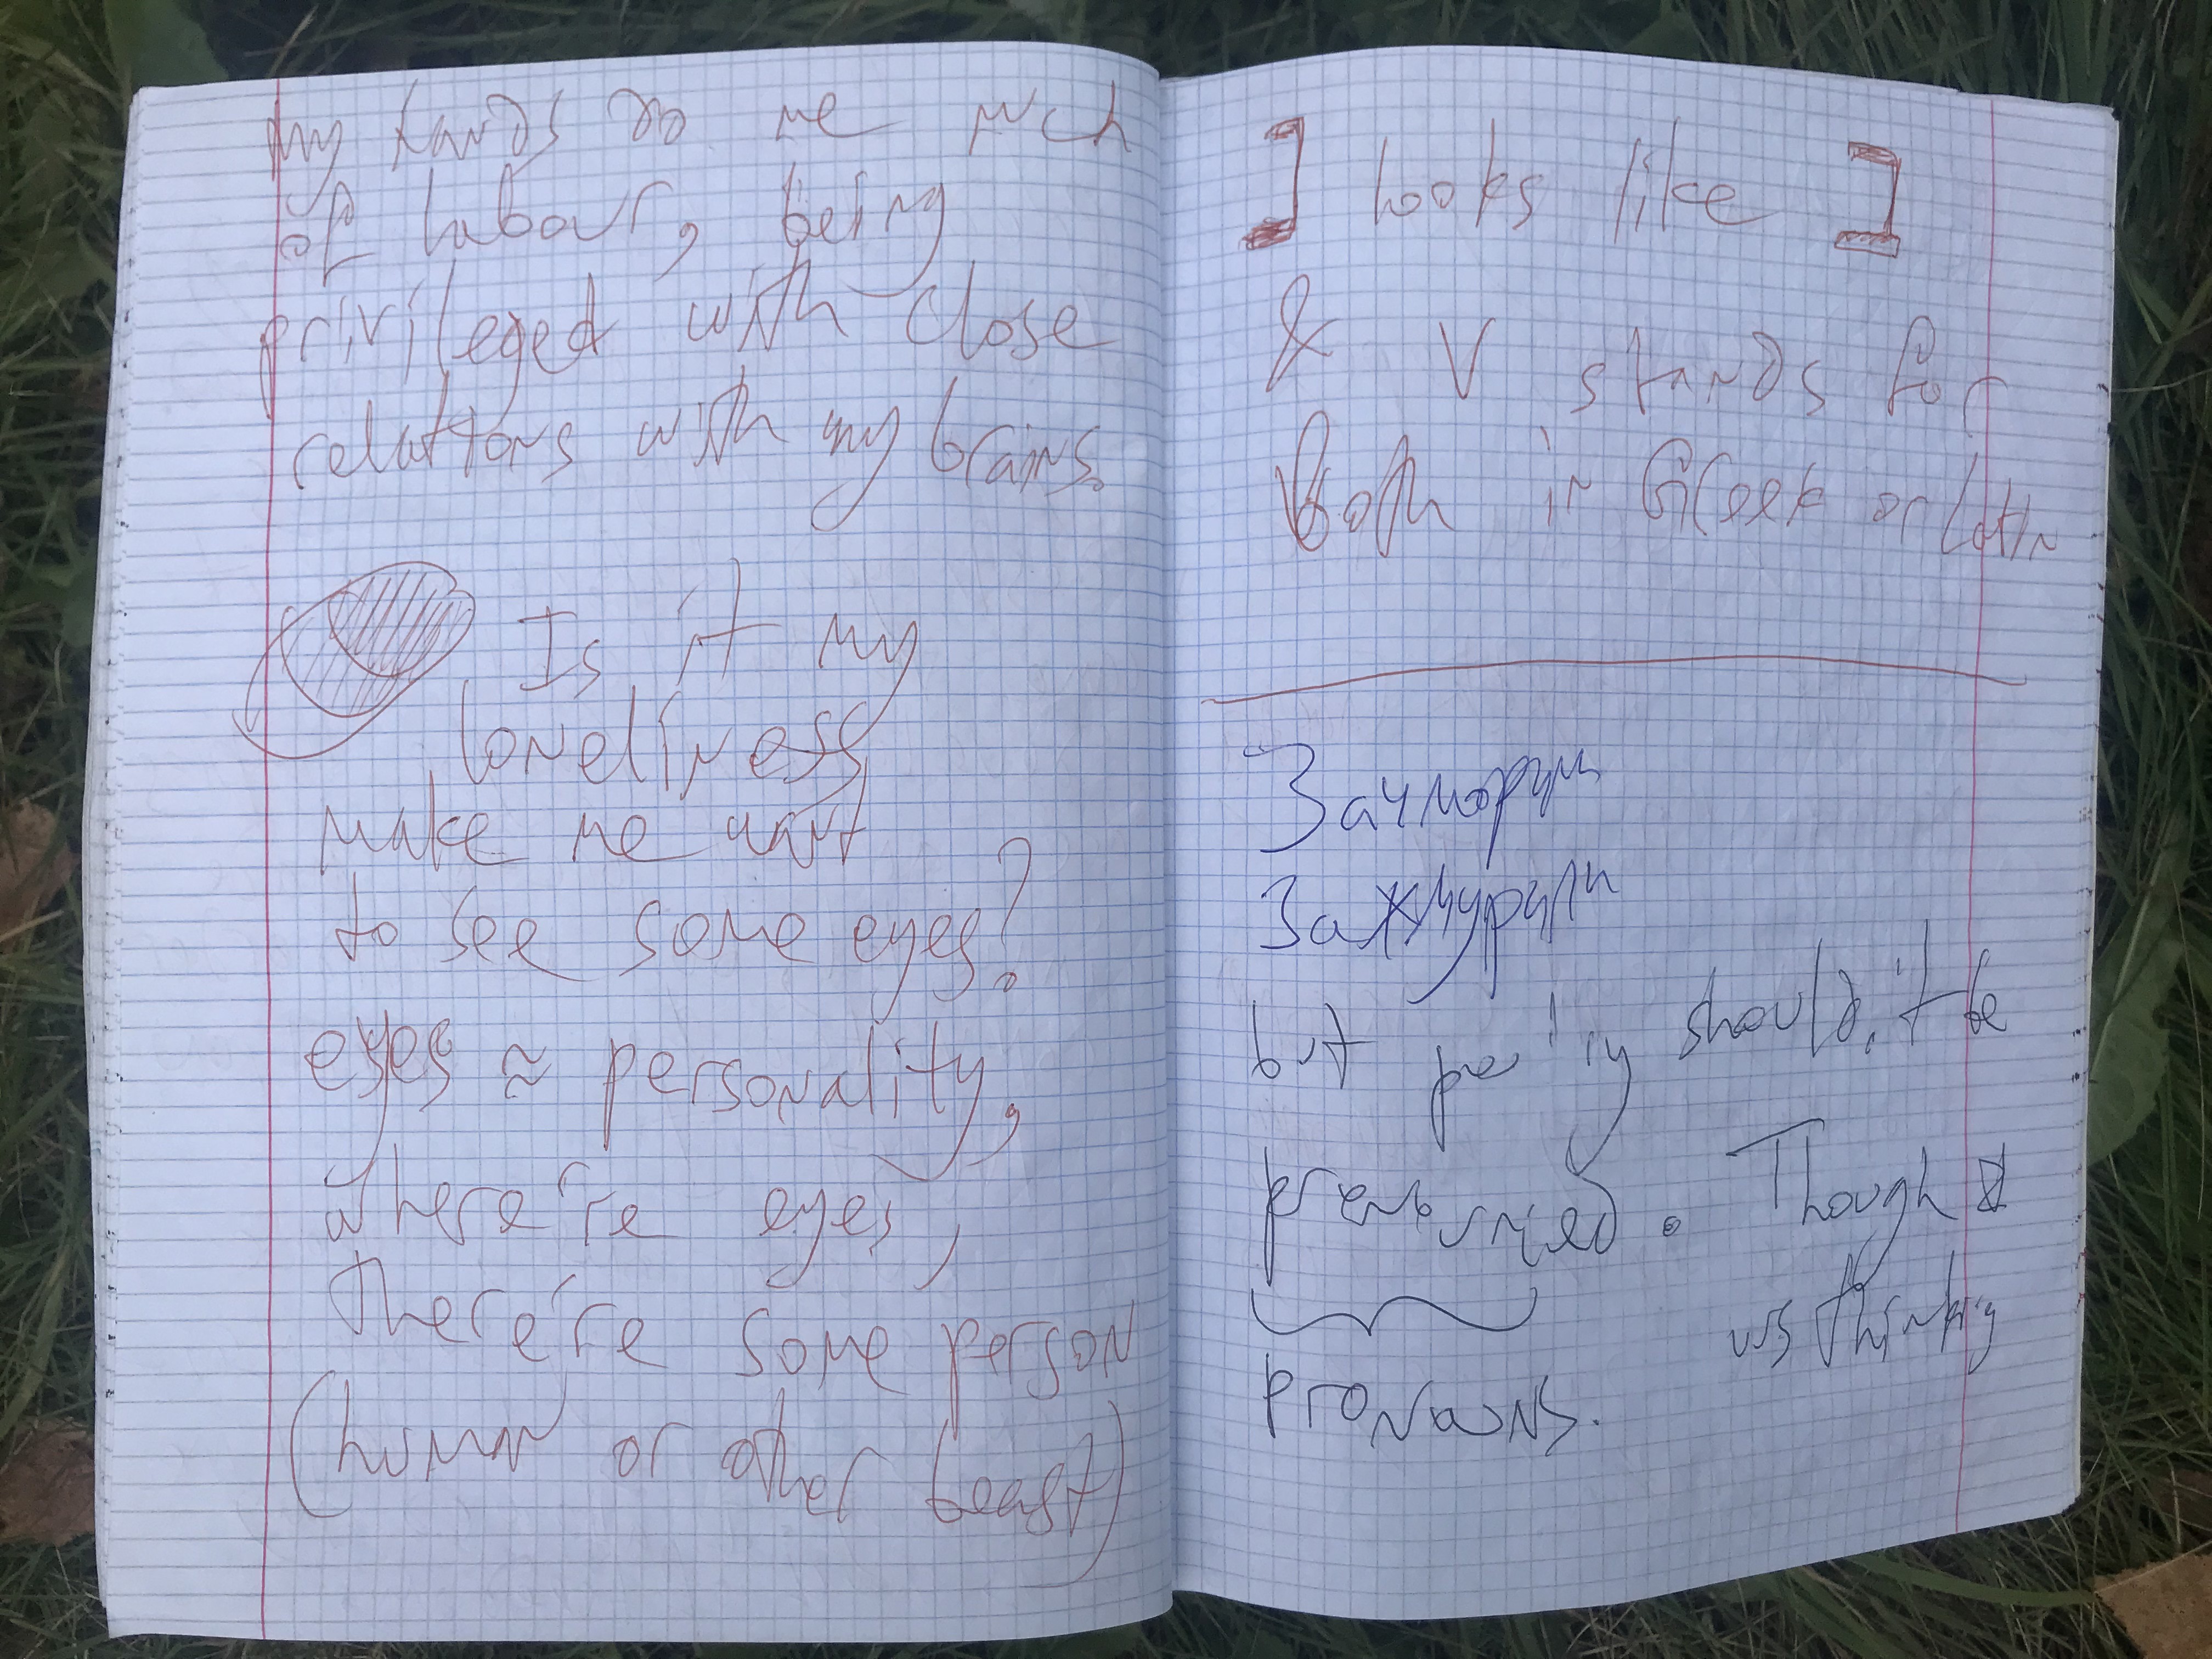 my hands do me much
of labour, being
privileged with close
relations with my brains.
Is it my
loneliness
make me want
to see some eyes?
eyes ≈ personality,
where're eyes,
there're some person
(human or other beast)
] looks like ]
& V stands for
both in Greek or Latin
"Зачморри
Зажмурри
but pe "ry should, it be
. Though I
was thinking
pronouns.